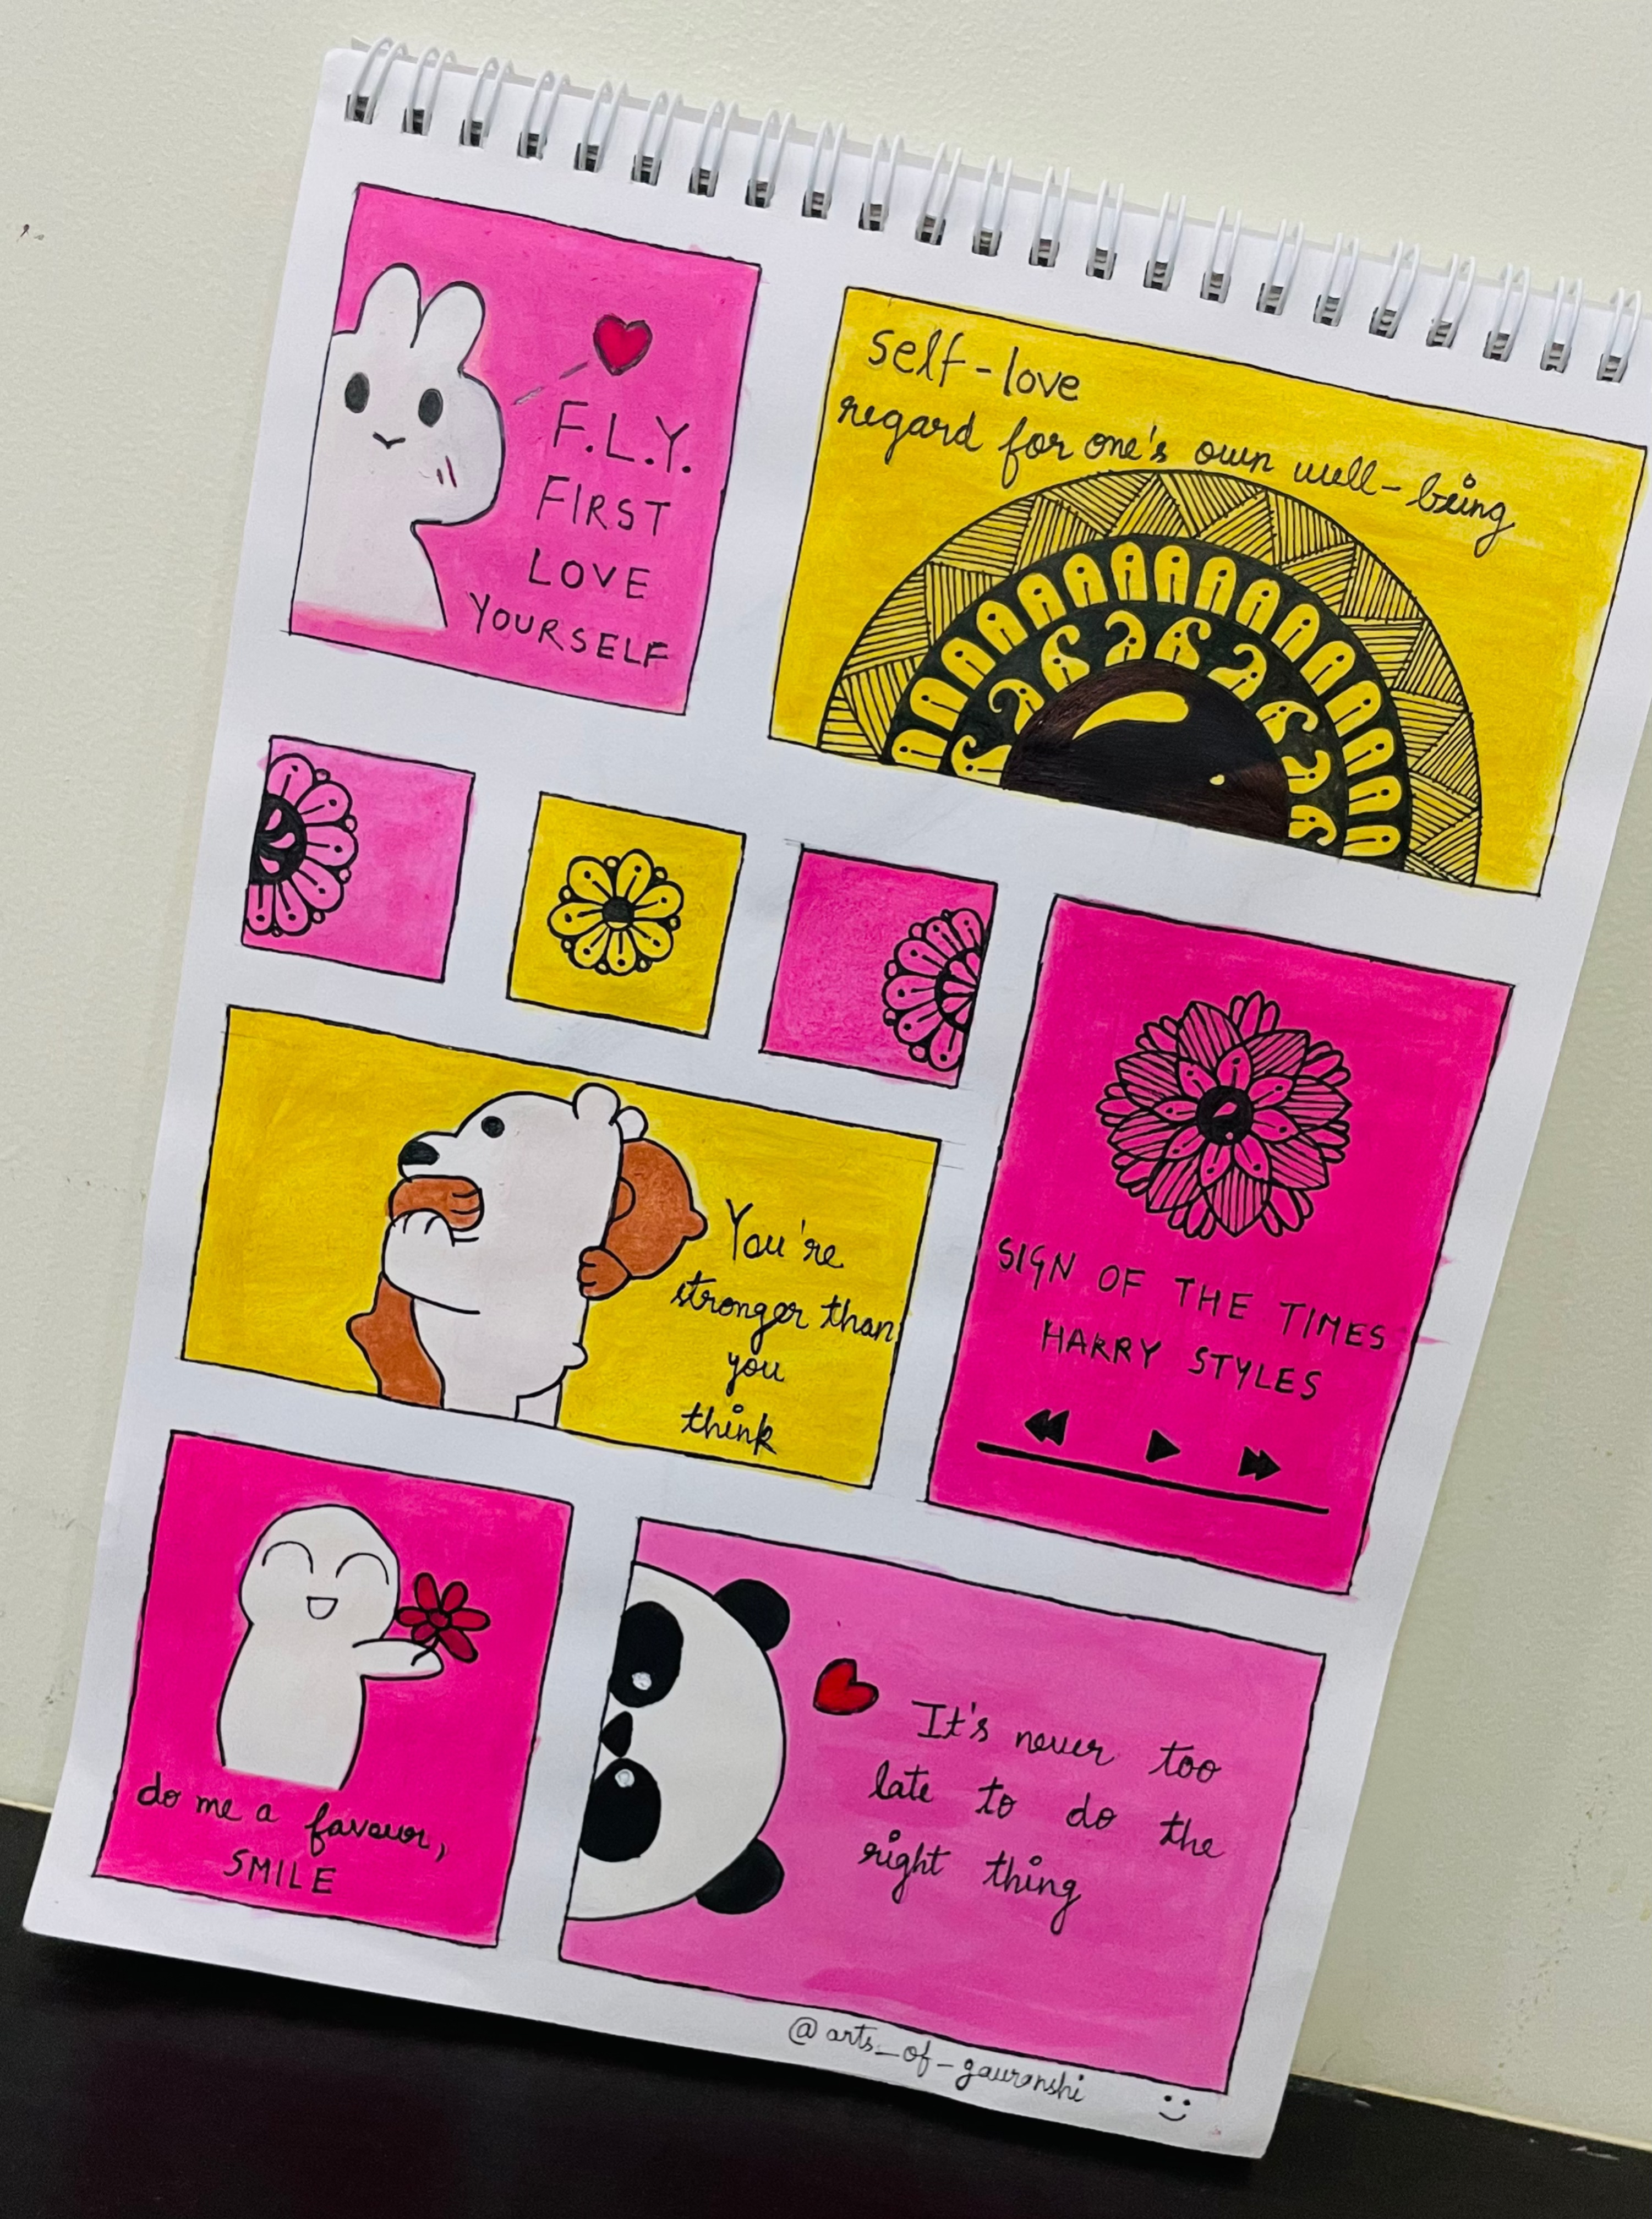 F.L.Y.
FIRST
LOVE
YOURSELF
self-love
regard for one's own well-being
You're
stronger than
you
think
SIGN OF THE TIMES
HARRY STYLES
do me a favour,
SMILE
It's never too
late to do the
right thing
@arts_of_gauranshi